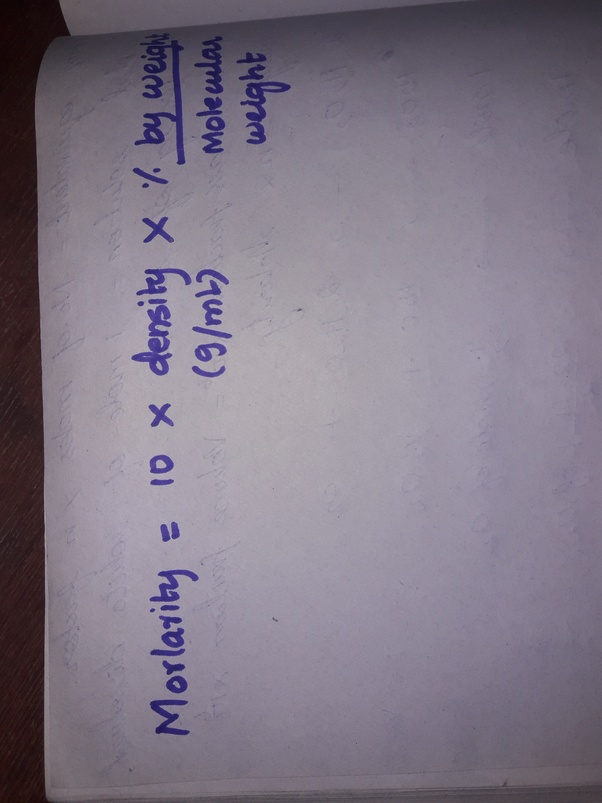 Morlarity = 10 x density x % by weight
(g/mL) Molecular
weight